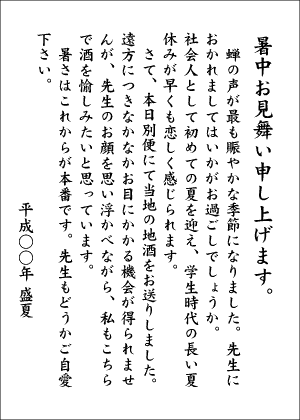 暑中お見舞い申し上げます。
蝉の声が最も賑やかな季節になりました。先生に
おかれましてはいかがお過ごしでしょうか。
社会人として初めての夏を迎え、学生時代の長い夏
休みが早くも恋しく感じられます。
さて、本日別便にて当地の地酒をお送りしました。
遠方につきなかなかお目にかかる機会が得られませ
んが、先生のお顔を思い浮かべながら、私もこちら
で酒を愉しみたいと思っています。
暑さはこれからが本番です。先生もどうかご自愛
下さい。
平成〇〇年 盛夏